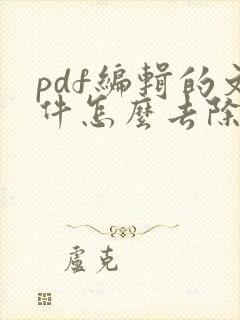 pdf編輯的文
件怎麼去除
盧克